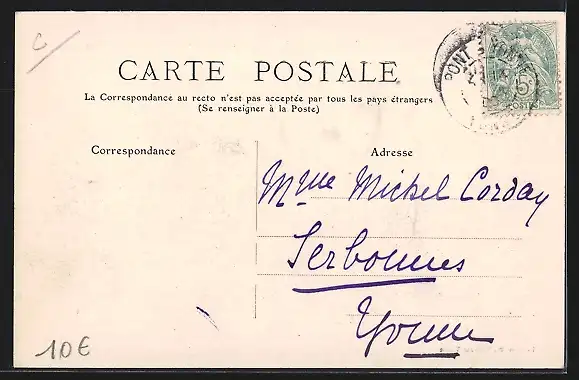 C
CARTE POSTALE
La Correspondance au recto n'est pas acceptée par tous les pays étrangers
(Se renseigner à la Poste)
Correspondance
Adresse
Mme Michel Corday
Serbonnes
Yonne
10€
PONT
5
POSTES